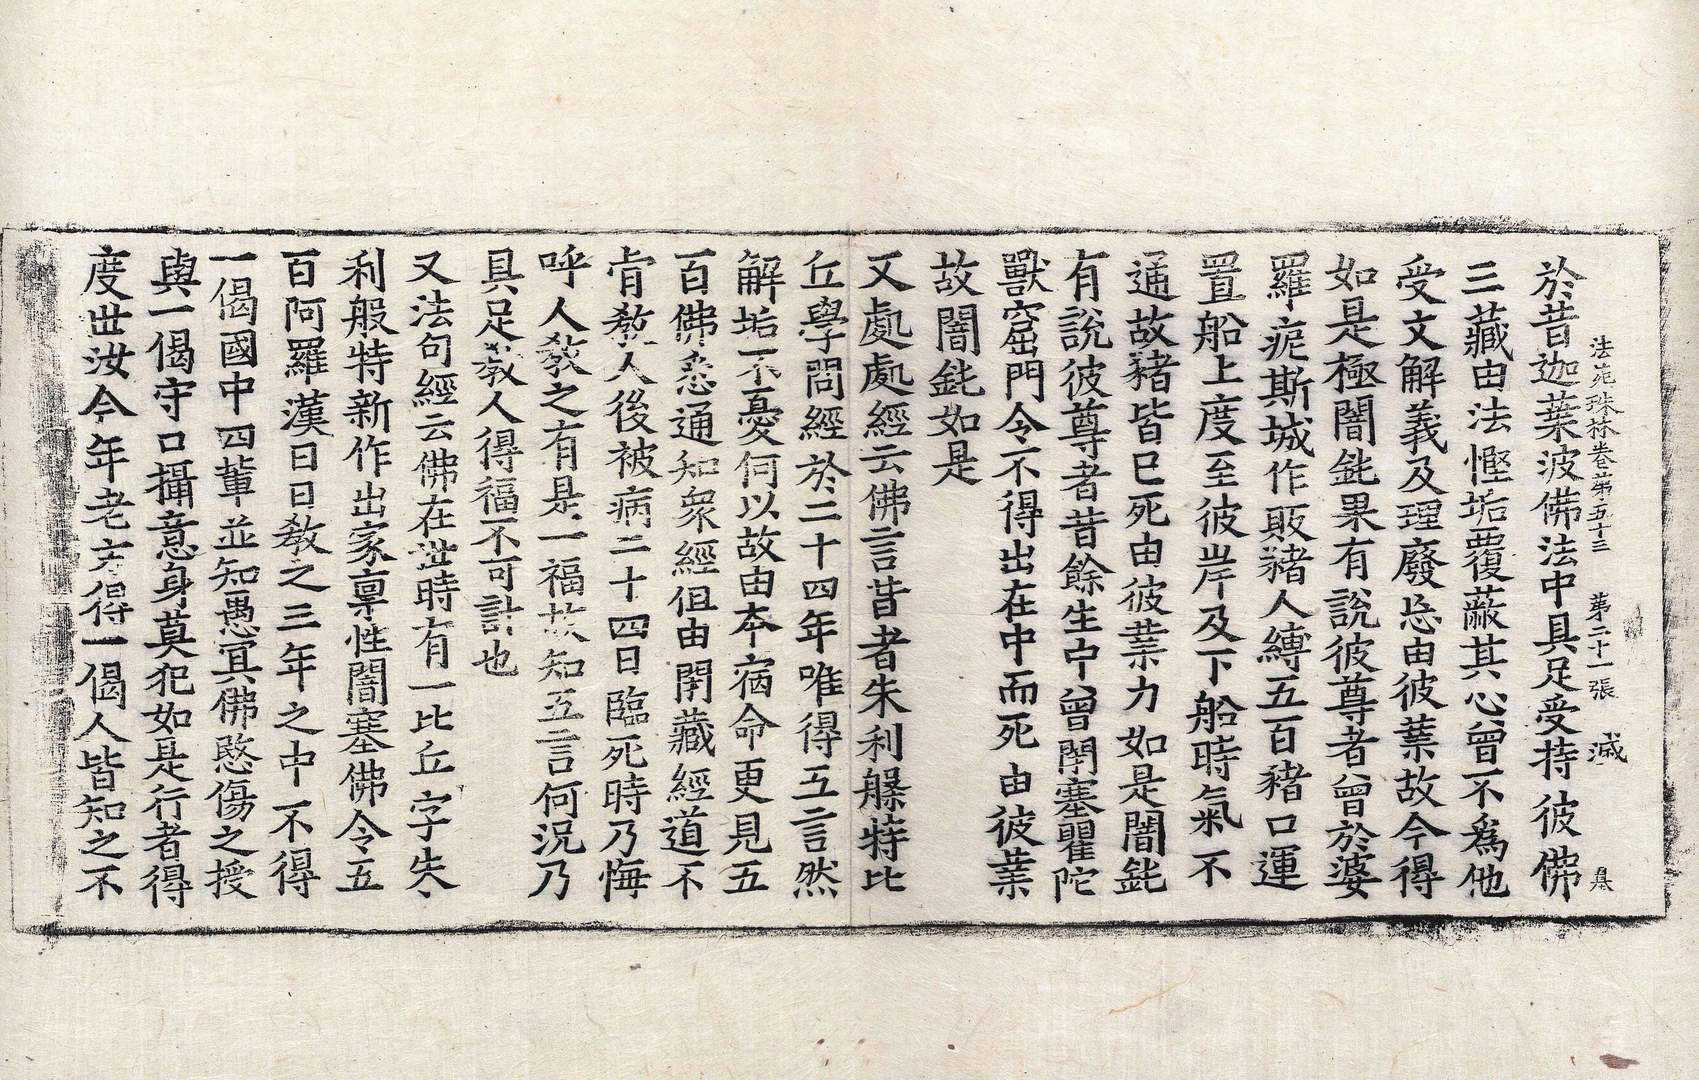 法苑珠林卷第五十三 第二十一張 㓕
於昔迦葉波佛法中具足受持彼佛
三藏由法慳垢覆蔽其心曾不爲他
受文解義及理廢忘由彼業故今得
如是極闇鈍果有說彼尊者曾於婆
羅痆斯城作販豬人縛五百豬口運
置船上度至彼岸及下船時氣不
通故豬皆已死由彼業力如是闇鈍
有說彼尊者昔餘生中曾閉塞瞿陀
獸窟門令不得出在中而死由彼業
故闇鈍如是
又處處經云佛言昔者朱利槃特比
丘學問經於二十四年唯得五言然
解垢不憂何以故由本宿命更見五
百佛悉通知衆經但由閉藏經道不
肯教人後被病二十四日臨死時乃悔
呼人教之有是一福故知五言何況乃
具足教人得福不可計也
又法句經云佛在世時有一比丘字朱
利般特新作出家稟性闇塞佛令五
百阿羅漢日日教之三年之中不得
一偈國中四輩並知愚冥佛愍傷之授
與一偈守口攝意身莫犯如是行者得
度世汝今年老方得一偈人皆知之不